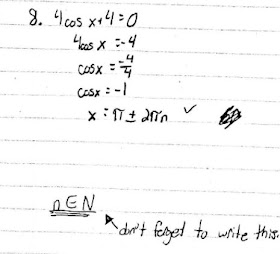 8. 4cos x+4=0
4cos x = -4
cosx = -4/4
cosx = -1
x = π ± 2πn ✓
n∈N
don't forget to write this.